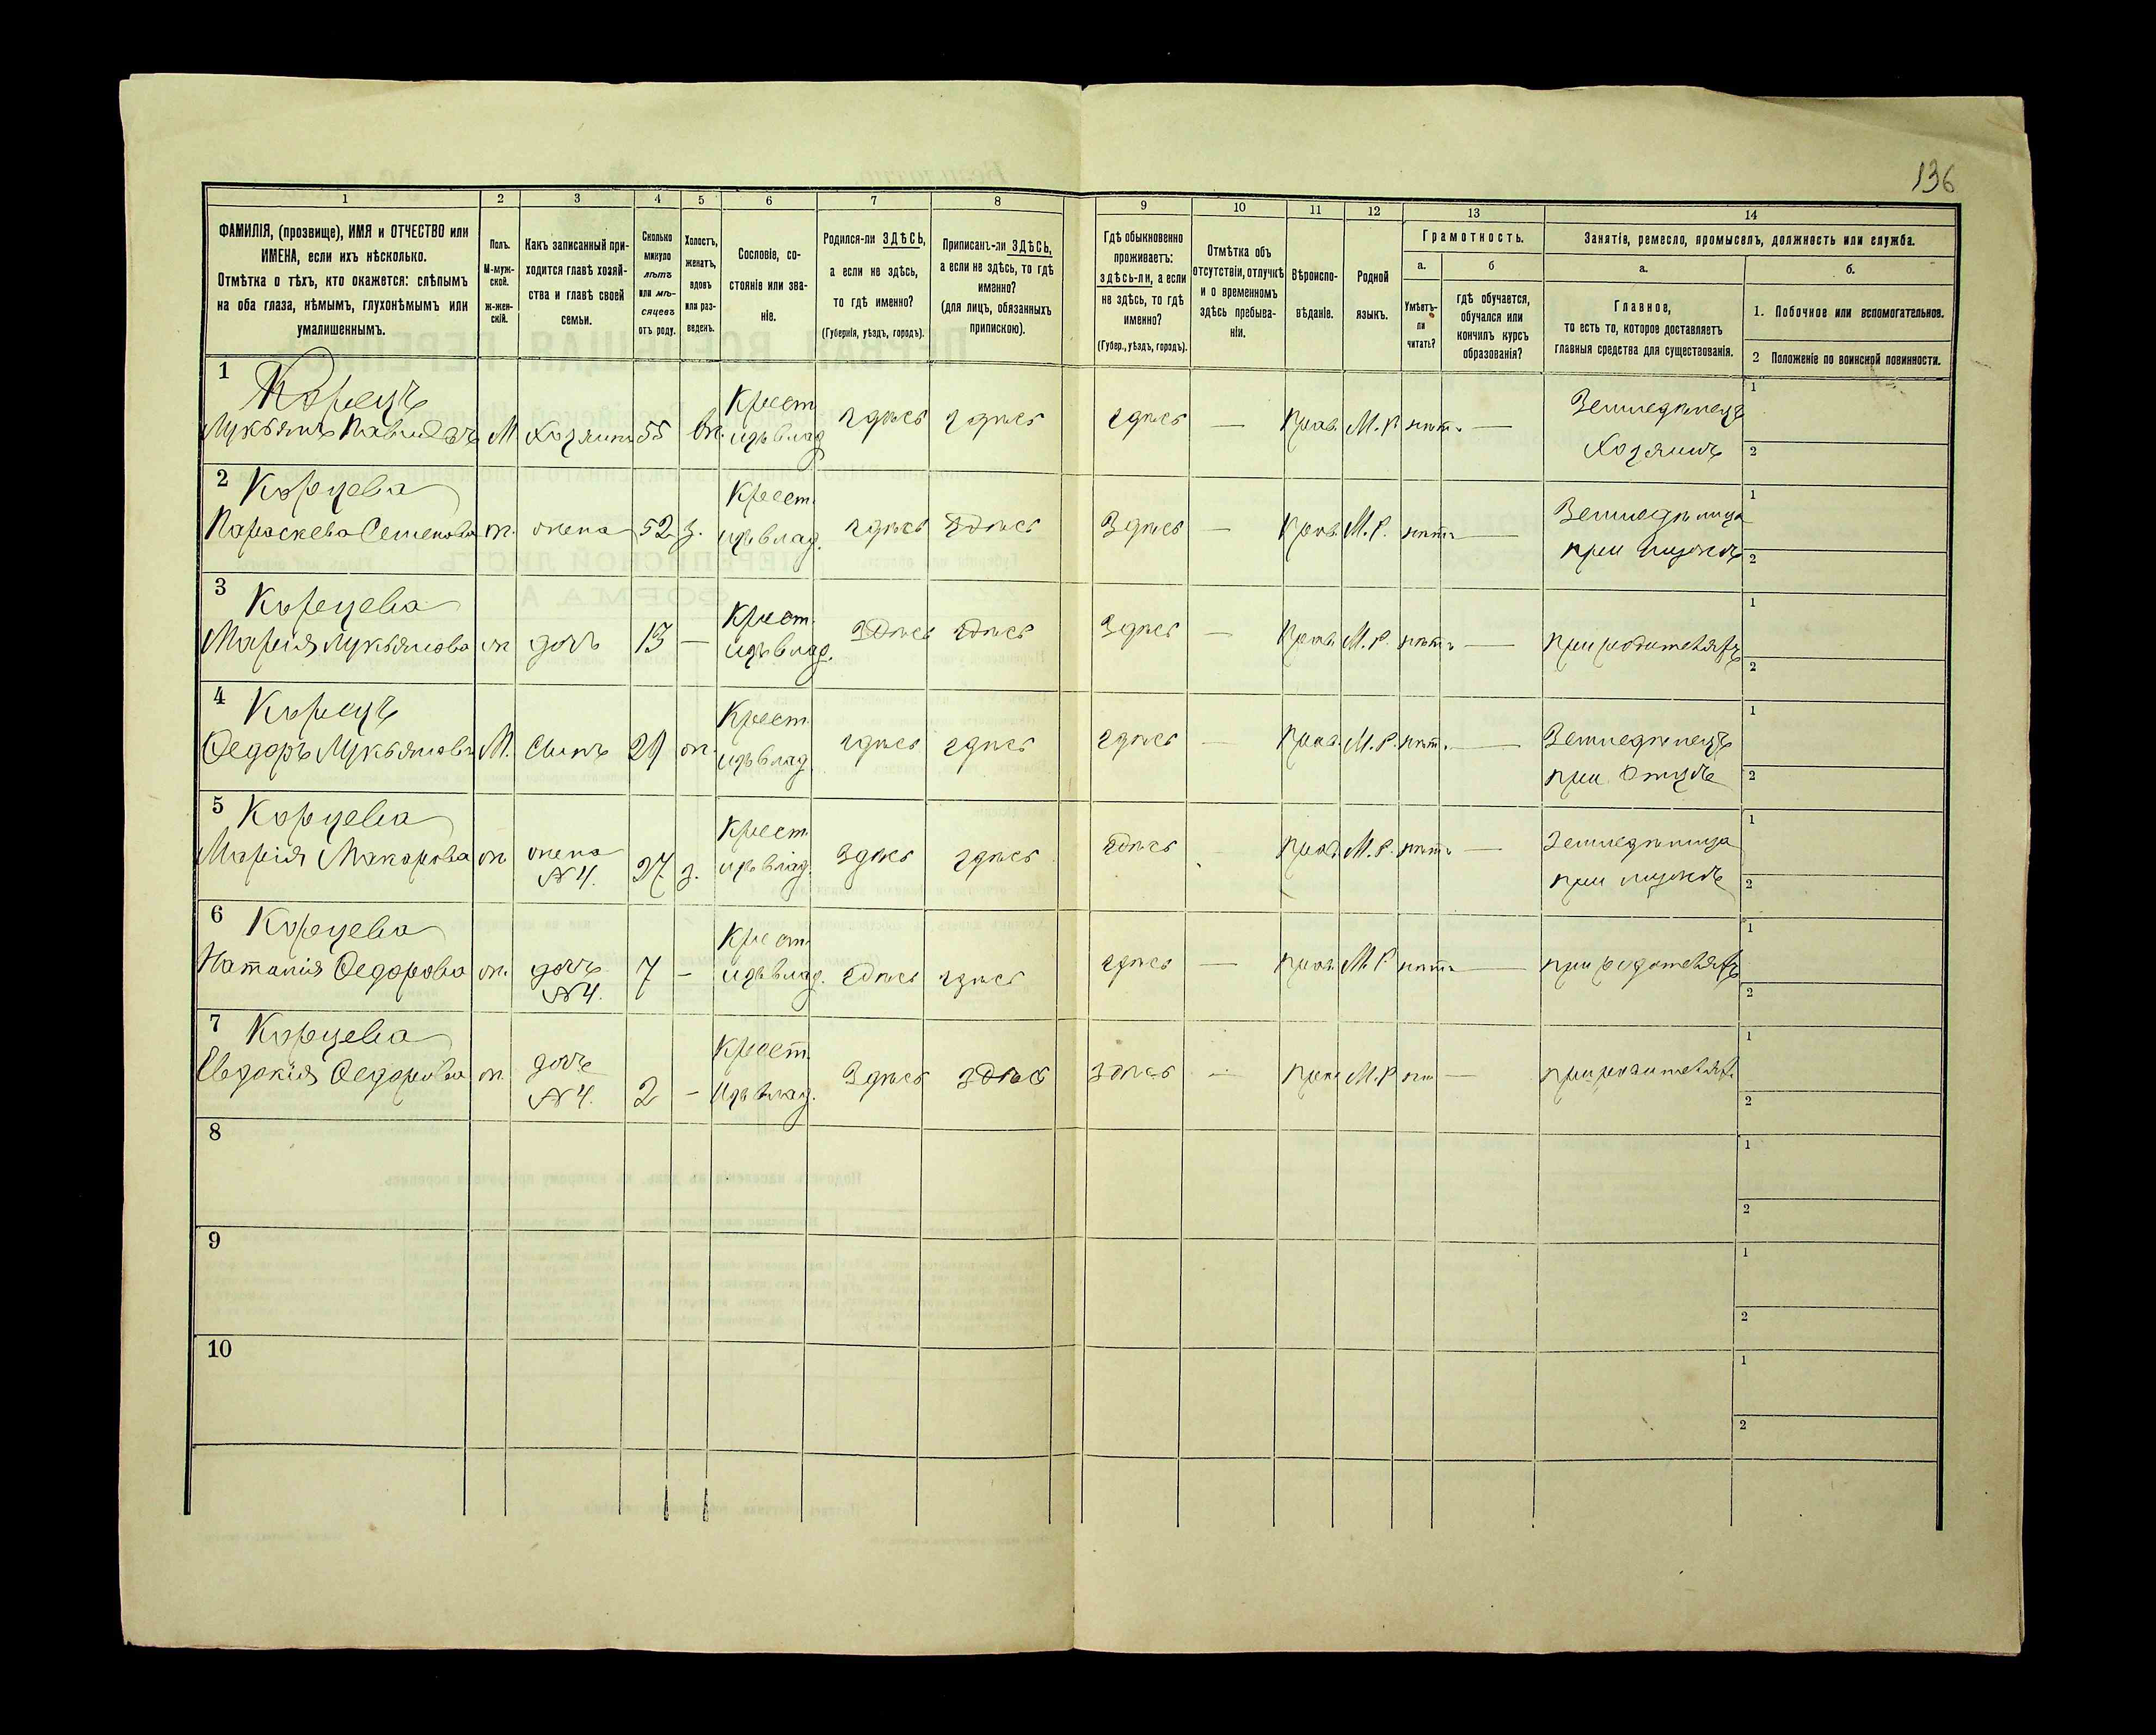 136
1 2 3 4 5 6 7 8 9 10 11 12 13 14
ФАМИЛІЯ, (прозвище), ИМЯ и ОТЧЕСТВО или
ИМЕНА, если ихъ нѣсколько.
Отмѣтка о тѣхъ, кто окажется: слѣпымъ
на оба глаза, нѣмымъ, глухонѣмымъ или
умалишеннымъ.
Полъ.
М-муж-
ской.
ж-жен-
скій.
Какъ записанный при-
ходится главѣ хозяй-
ства и главѣ своей
семьи.
Сколько
минуло
лѣтъ
или мѣ-
сяцевъ
отъ роду.
Холостъ,
женатъ,
вдовъ
или раз-
веденъ.
Сословіе, со-
стояніе или зва-
ніе.
Родился-ли ЗДѢСЬ,
а если не здѣсь,
то гдѣ именно?
(Губернія, уѣздъ, городъ).
Приписанъ-ли ЗДѢСЬ,
а если не здѣсь, то гдѣ
именно?
(для лицъ, обязанныхъ
припискою).
Гдѣ обыкновенно
проживаетъ:
здѣсь-ли, а если
не здѣсь, то гдѣ
именно?
(Губер., уѣздъ, городъ).
Отмѣтка объ
отсутствіи, отлучкѣ
и о временномъ
здѣсь пребыва-
ніи.
Вѣроиспо-
вѣданіе.
Родной
языкъ.
Грамотность.
а.
Умѣетъ-
ли
читать?
б
гдѣ обучается,
обучался или
кончилъ курсъ
образованія?
Занятія, ремесло, промыселъ, должность или служба.
а.
Главное,
то есть то, которое доставляетъ
главныя средства для существованія.
б.
1. Побочное или вспомогательное.
2 Положеніе по воинской повинности.
1 Корецъ Крест Земледѣлецъ 1
Лукьянъ Павловъ М Хозяинъ 55 ж. изъ влад здѣсь здѣсь здѣсь — Прав. М.Р. нѣтъ — Хозяинъ 2
2 Корцева Крест. Земледѣлица 1
Параскева Семенова ж. жена 52 з. изъ влад. здѣсь здѣсь здѣсь — Прав. М.Р. нѣтъ — при мужѣ 2
3 Корцева Крест. 1
Марія Лукьянова ж дочь 13 — изъ влад. здѣсь здѣсь здѣсь — Прав. М.Р. нѣтъ — при родителяхъ 2
4 Корецъ Крест. Земледѣлецъ 1
Ѳедоръ Лукьяновъ М. сынъ 29 ж. изъ влад. здѣсь здѣсь здѣсь — Прав. М.Р. нѣтъ — при отцѣ 2
5 Корцева Крест. Земледѣлица 1
Марія Макарова ж жена №4. 27 з. изъ влад. здѣсь здѣсь здѣсь Прав. М.Р. нѣтъ — при мужѣ 2
6 Корцева Крест. 1
Наталія Ѳедорова ж. дочь №4. 7 — изъ влад. здѣсь здѣсь здѣсь — прав. М.Р. нѣтъ — при родителяхъ 2
7 Корцева Крест. 1
Евдокія Ѳедорова ж. дочь №4. 2 — изъ влад. здѣсь здѣсь здѣсь — прав М.Р нѣт — при родителях. 2
8 1
2
9 1
2
10 1
2